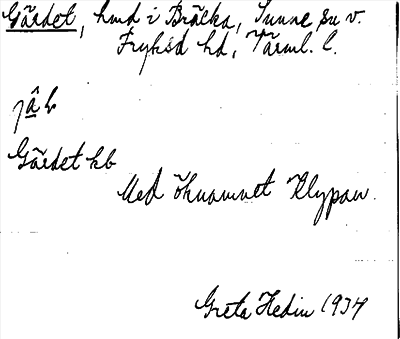 Gärdet, hmd i Bräcka, Sunne sn v.
Fryksd hd, Värml. l.
jâ b
Gärdet kb
Med öknamnet Klypan.
Greta Hedin 1937